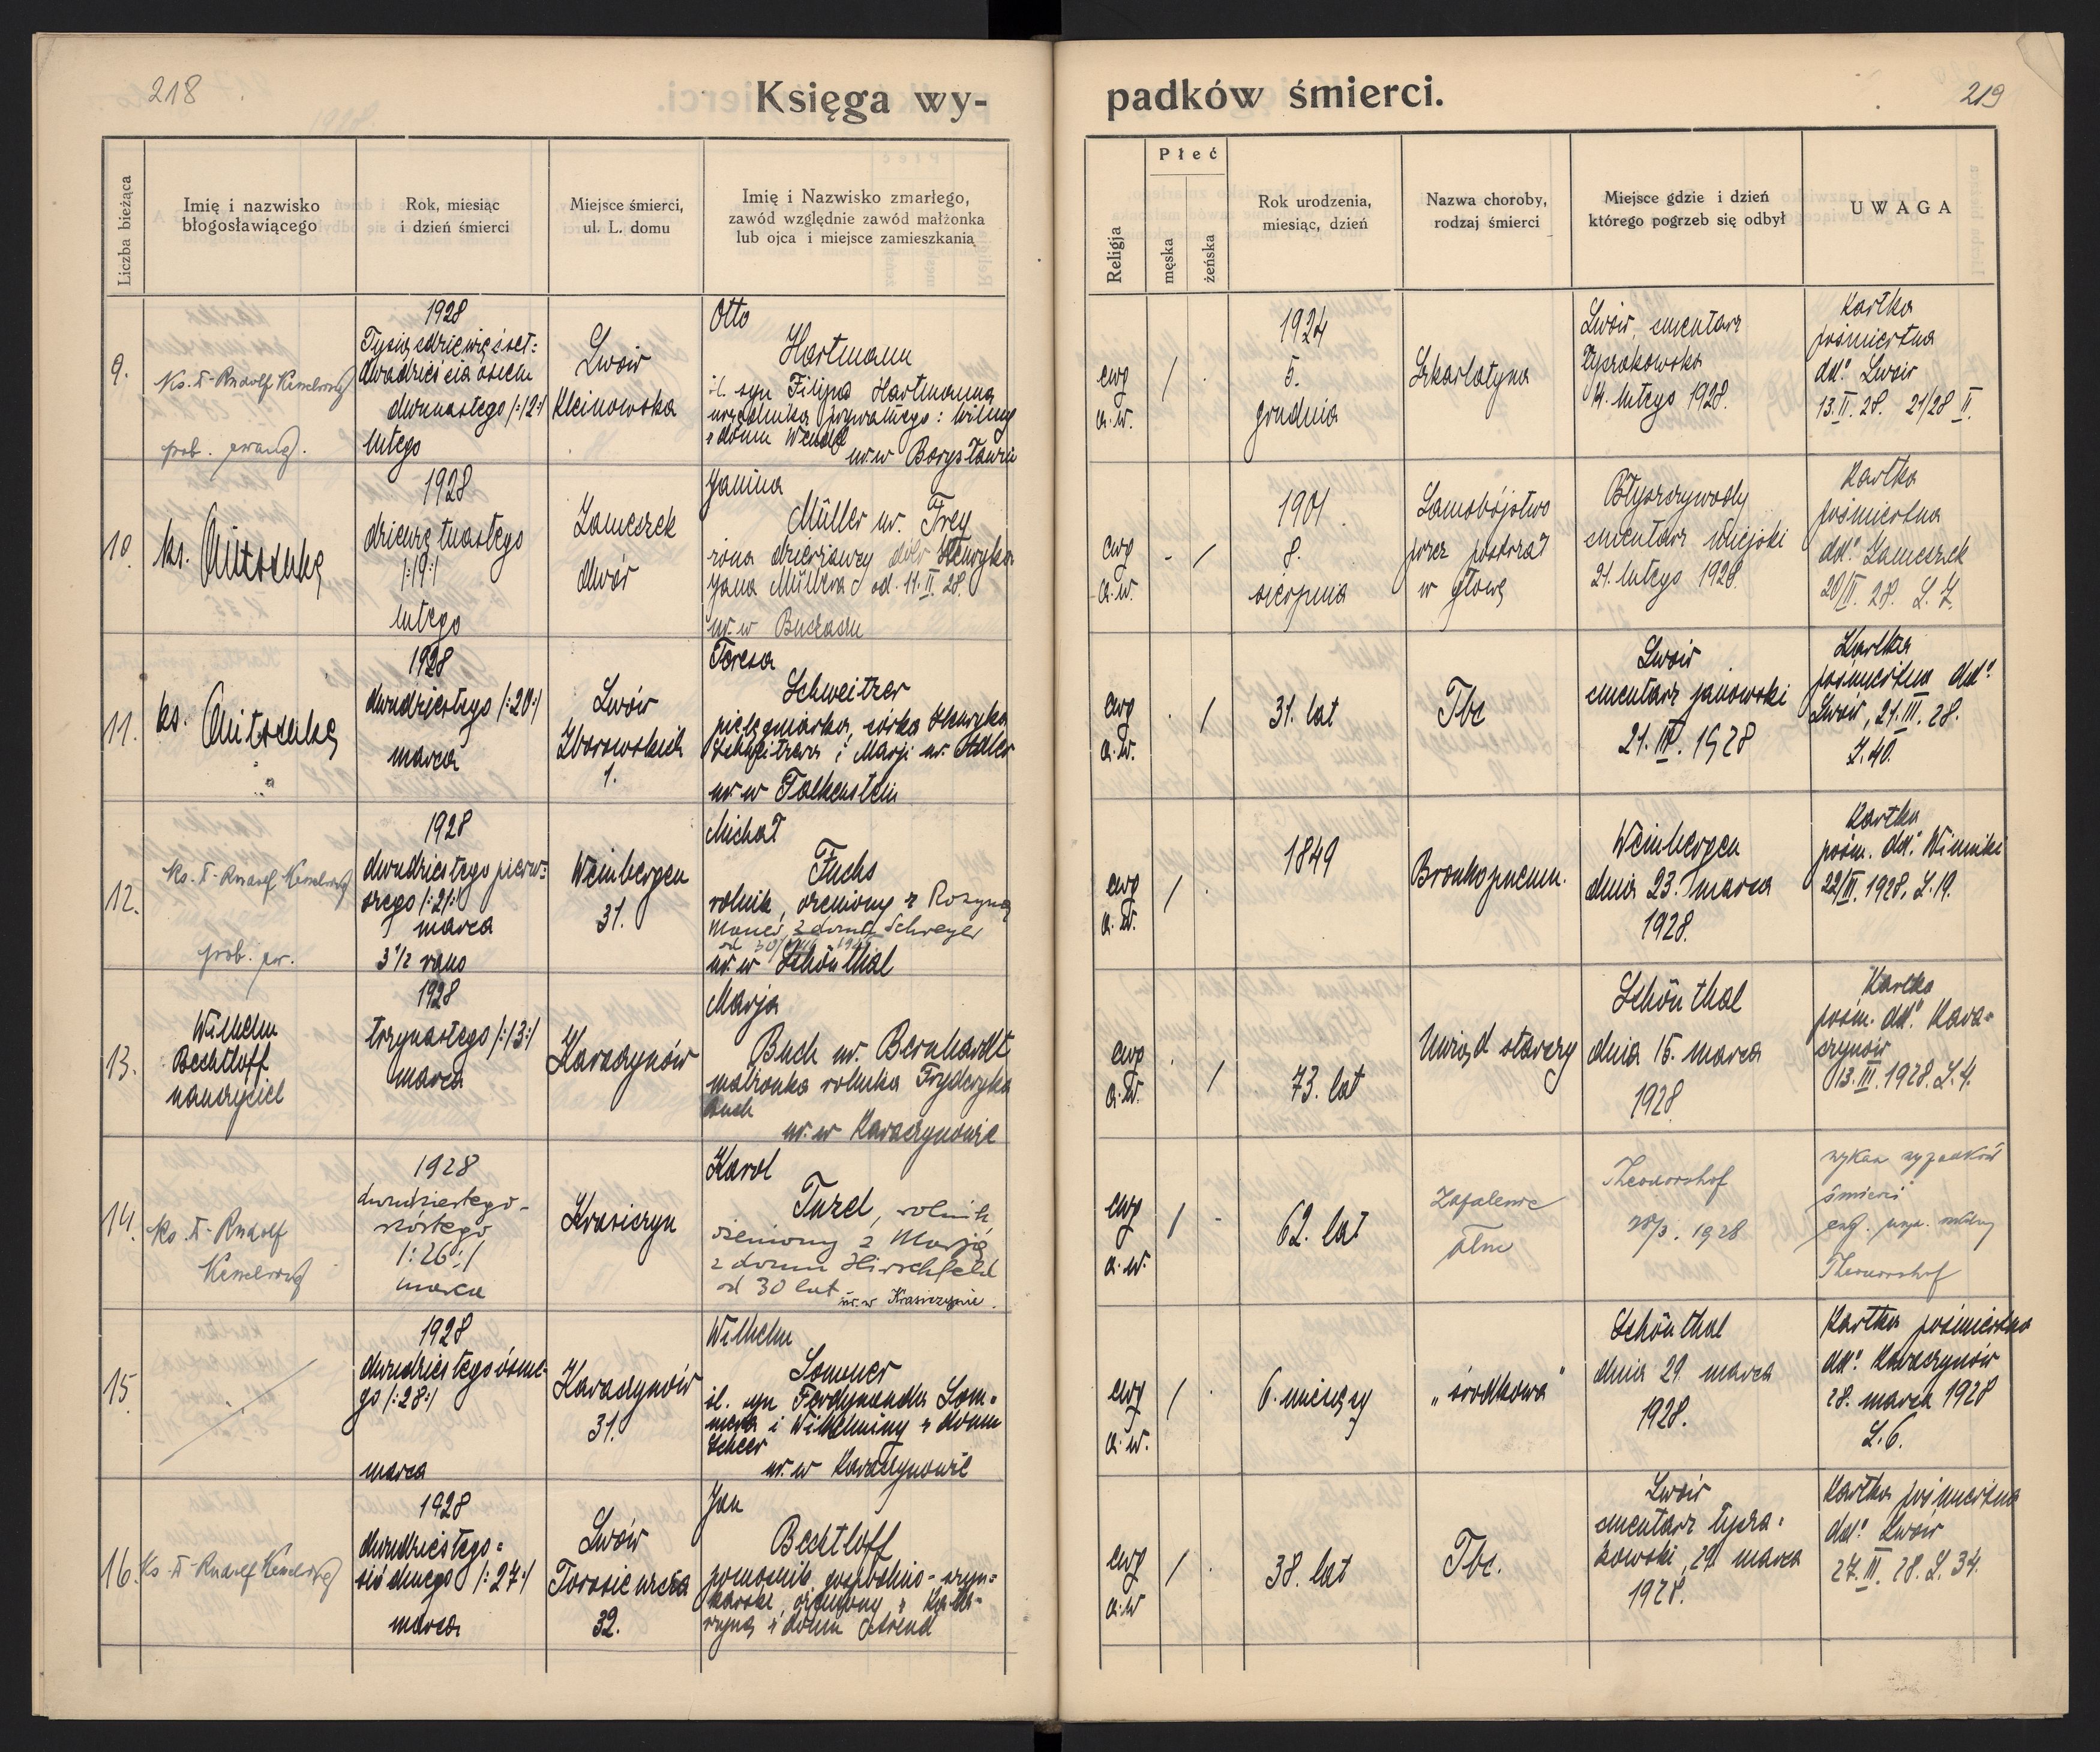 218
Księga wy-
padków śmierci.
219
Liczba bieżąca
Imię i nazwisko
błogosławiącego
Rok, miesiąc
i dzień śmierci
Miejsce śmierci,
ul. L. domu
Imię i Nazwisko zmarłego,
zawód względnie zawód małżonka
lub ojca i miejsce zamieszkania
Religja
Płeć
męska
żeńska
Rok urodzenia,
miesiąc, dzień
Nazwa choroby,
rodzaj śmierci
Miejsce gdzie i dzień
którego pogrzeb się odbył
UWAGA
9.
Ks. Dr Rudolf Kesselring
prob. ewang.
1928
Tysiąc dziewięćset:
dwadzieścia ósiem
dwunastego /:12:/
lutego
Lwów
Kleinowska
Otto
Hartmann
śl. syn Filipa Hartmanna
urzędnika prywatnego i Wilmy
z domu Wendel
ur. w Borysławiu
ewg
a. w.
/
.
1924
5.
grudnia
Szkarlatyna
Lwów, cmentarz
Łyczakowska
14. lutego 1928.
Kartka
pośmiertna
ddº Lwów
13. II. 28. 21/28 II.
10.
ks. Mitschke
1928
dziewiętnastego
/:19:/
lutego
Zameczek
dwór
Janina
Müller ur. Frey
żona dzierżawcy dóbr Henryka
Jana Müllera od. 11. II. 28.
ur. w Buczaczu
ewg
a. w.
-
/
1901
8.
sierpnia
Samobójstwo
przez postrzał
w głowę
Błyszczywody
cmentarz tutejszki
21. lutego 1928.
Kartka
pośmiertna
ddº Zameczek
20/II. 28. L. 7.
11.
ks. Mitschke
1928
dwudziestego /:20:/
marca
Lwów
Zborowskich
1.
Teresa
Schweitzer
pielęgniarka, córka Henryka
Schweitzera i Marji ur. Adler
ur. w Falkenstein
ewg
a. w.
.
/
31. lat
Tbc
Lwów
cmentarz janowski
21. III. 1928
Kartka
pośmiertna ddº
Lwów, 21. III. 28.
L. 40.
12.
Ks. Dr Rudolf Kesselring
prob. ew.
1928
dwudziestego pierw:
szego /:21:/
marca
3 1/2 rano
Weinbergen
31.
Michał
Fuchs
rolnik, ożeniony z Rozyną
Maurer, z domu Schreyer
ur. w Schönthal
ewg
a. w.
/
.
1849
Bronhopneum.
Weinbergen
dnia 23. marca
1928.
Kartka
pośm. ddº Winniki
22/III. 1928. L. 19.
13.
Wilhelm
Bechtloff
nauczyciel
1928
trzynastego /:13:/
marca
Karaczynów
Marja
Buch ur. Bernhardt
małżonka rolnika Fryderyka
Buch
ur. w Karaczynowie
ewg
a. w.
.
/
73. lat
Uwiąd starczy
Schönthal
dnia 15. marca
1928
Kartka
pośm. ddº Kara=
czynów
13. III. 1928. L. 4.
14.
Ks. Dr Rudolf
Kesselring
1928
dwudziestego-
szóstego
/:26:/
marca
Krasiczyn
Karol
Turel, rolnik,
ożeniony z Marją
z domu Hirschfeld
od 30 lat
ur. w Krasiczynie.
ewg
a. w.
/
-
62. lat
Zapalenie
płuc
Theodorshof
28/3. 1928
wykaz wypadków
śmierci
Theodorshof
15.
1928
dwudziestego ósme-
go /:28:/
marca
Karaczynów
31.
Wilhelm
Sommer
śl. syn Ferdynanda Som=
mera i Wilhelminy z domu
Scheer
ur. w Karaczynowie
ewg
a. w.
/
.
6. miesięcy
„środkowa"
Schönthal
dnia 29. marca
1928.
Kartka pośmiertna
ddº Karaczynów
28. marca 1928
L. 6.
16.
Ks. Dr Rudolf Kesselring
1928
dwudziestego=
siódmego /:27:/
marca
Lwów
Torosiewicza
32.
Jan
Bechtloff
pomocnik gospodnio-szyn=
karski, ożeniony z Kata-
rzyną z domu Arend
ewg
a. w
/
.
38. lat
Tbc.
Lwów
cmentarz Łycza=
kowski, 29. marca
1928.
Kartka pośmiertna
ddº Lwów
27. III. 28. L. 34.